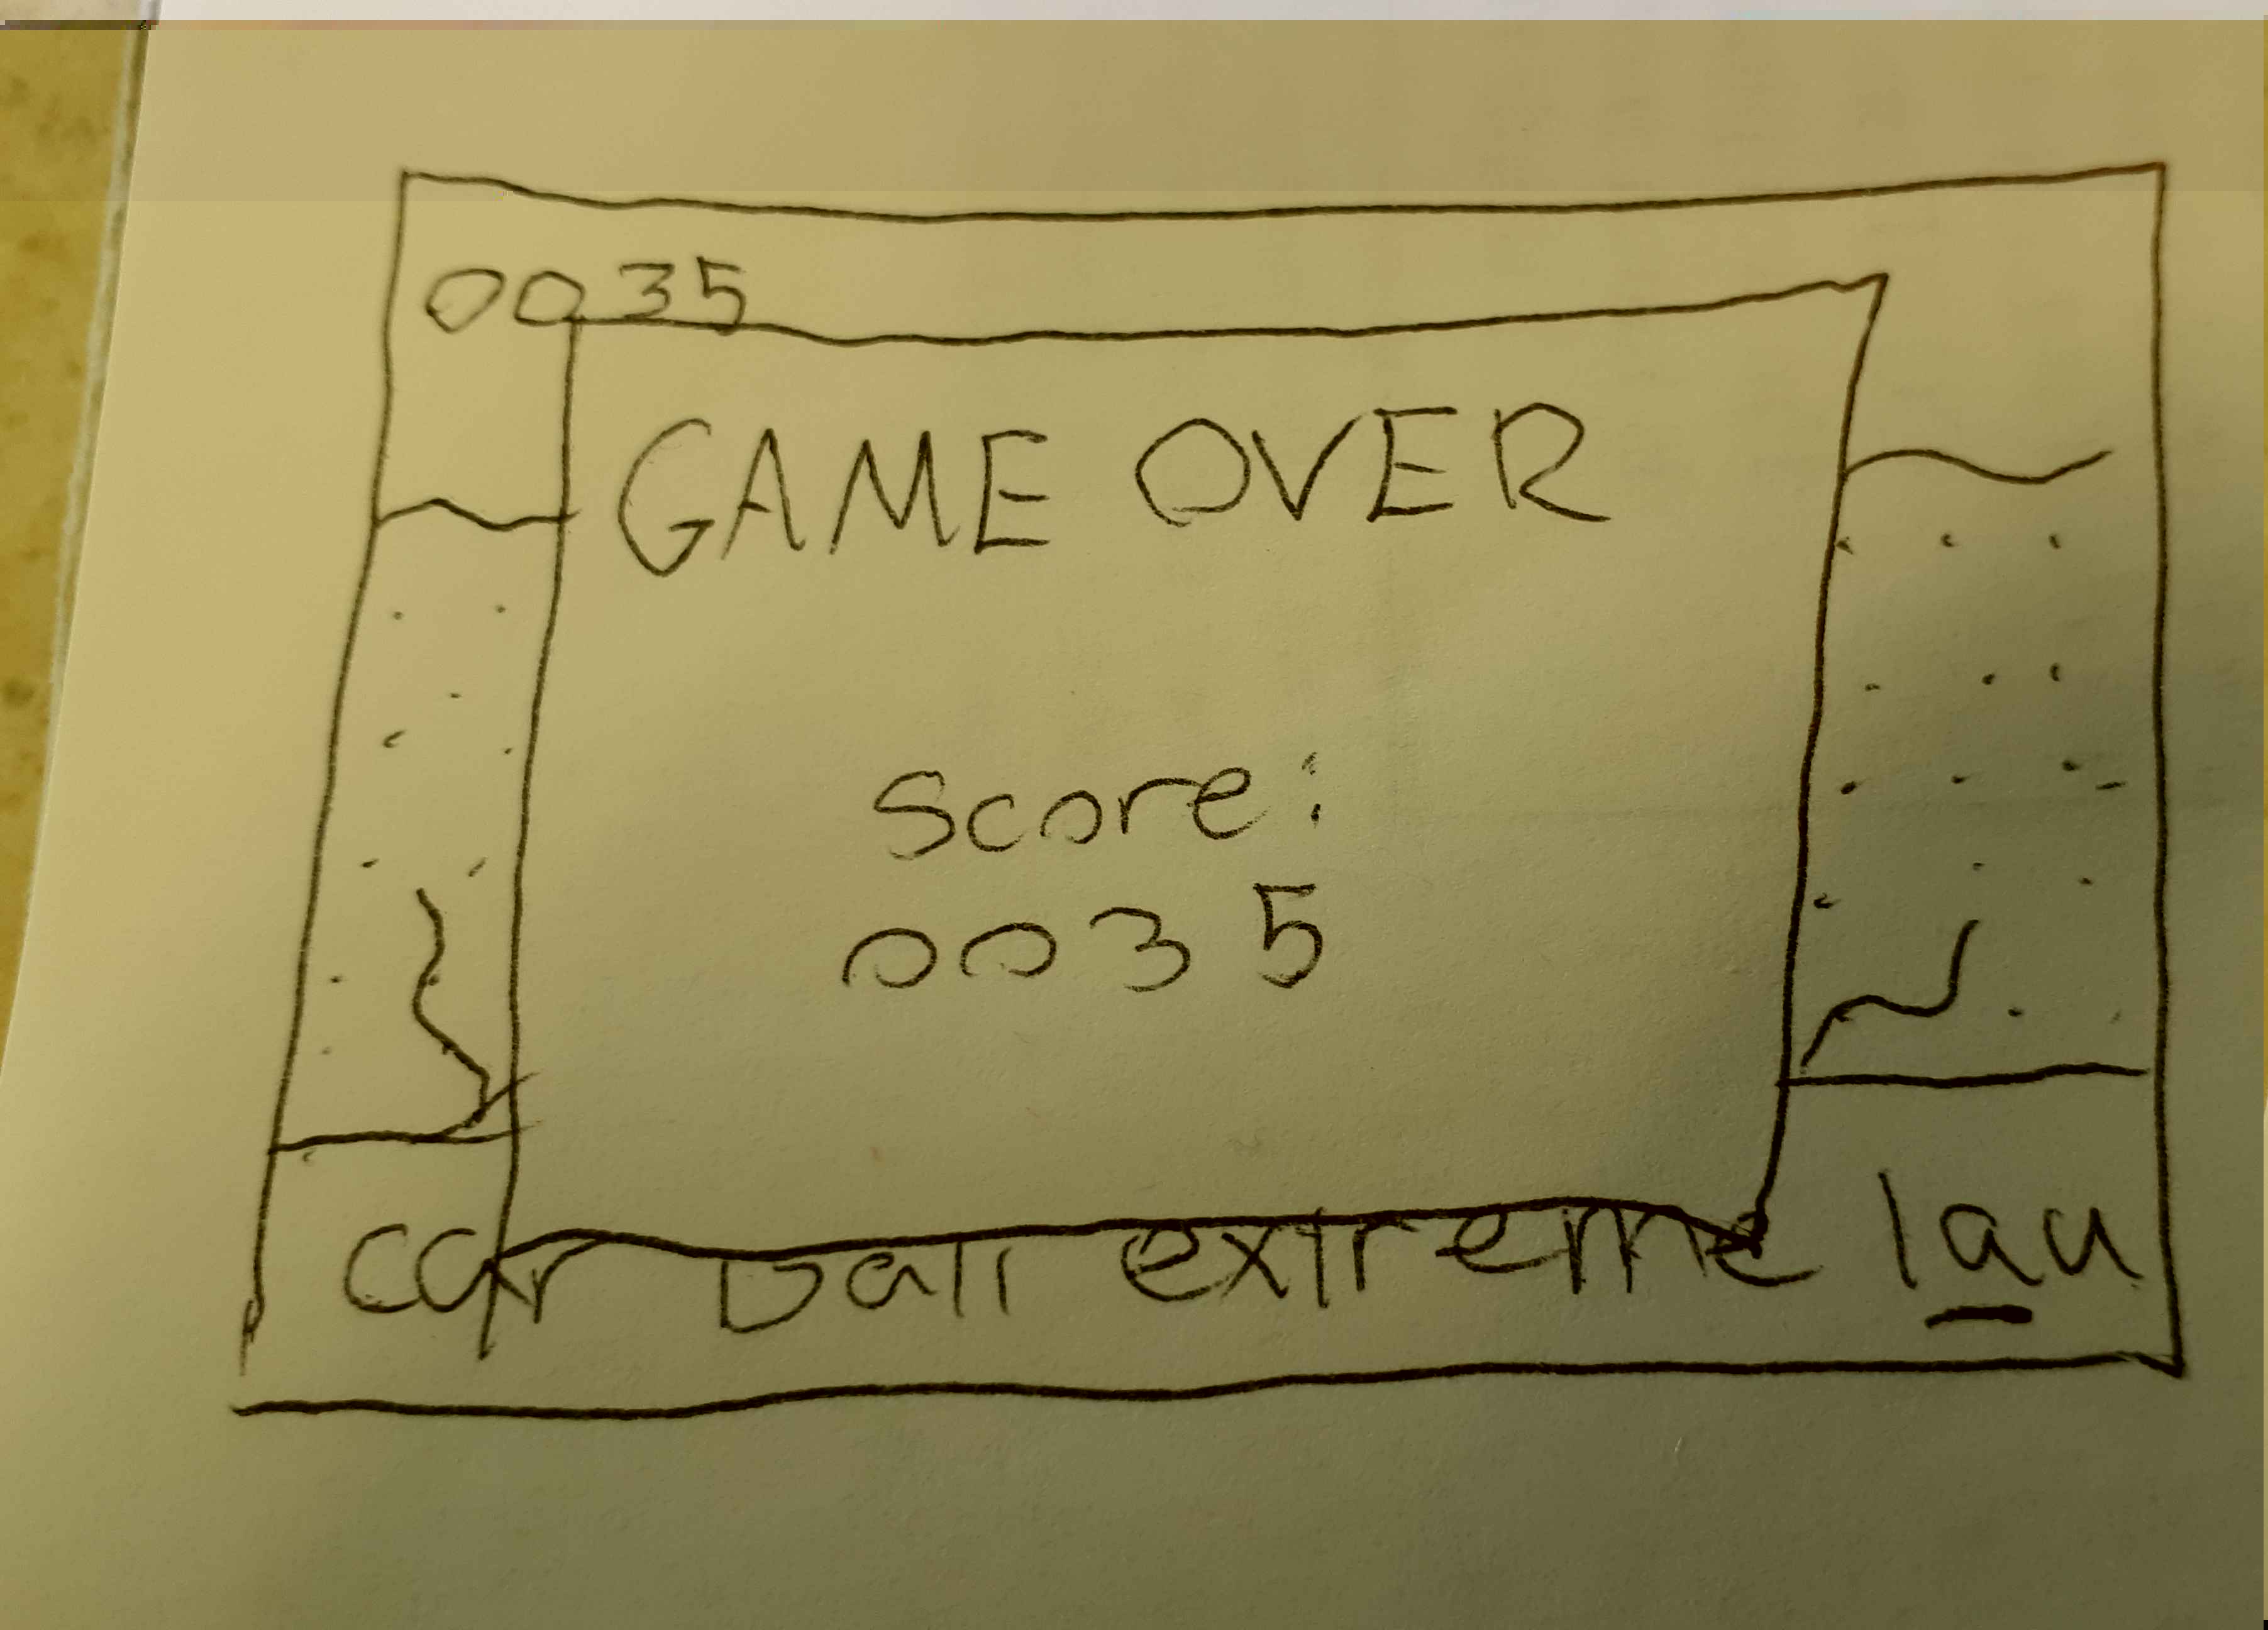 0035
GAME OVER
Score:
0035
extreme lau